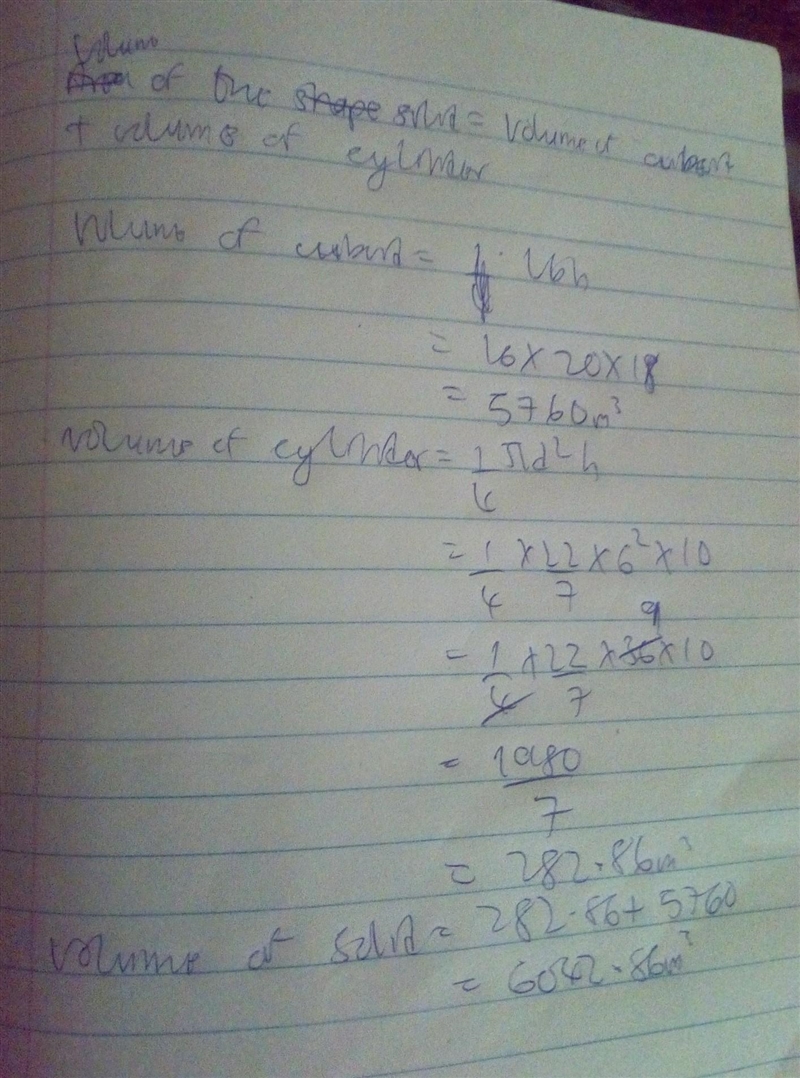 Volume
Area of the shape solid = Volume of cuboid
+ volume of cylinder
Volume of cuboid = lbh
= 16 x 20 x 18
= 5760m³
Volume of cylinder = 1/4 πd²h
= 1/4 x 22/7 x 6² x 10
9
= 1/4 x 22/7 x 36 x 10
= 1980/7
= 282.86m³
Volume of solid = 282.86 + 5760
= 6042.86m³